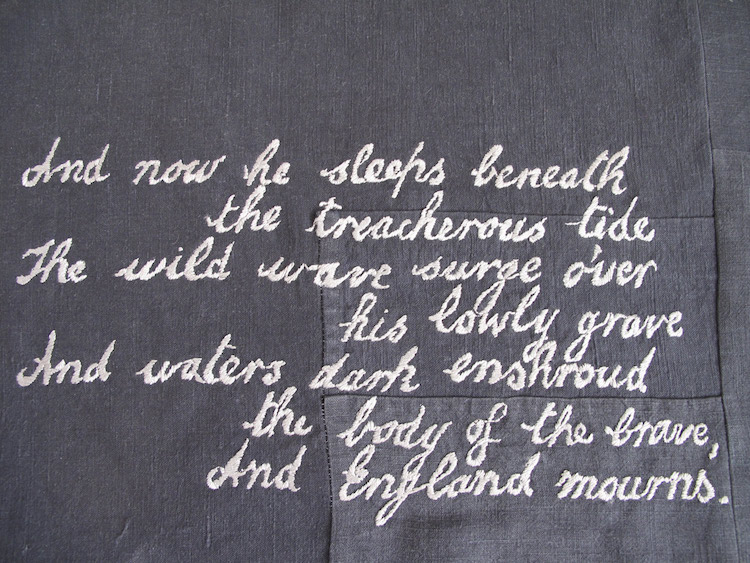 And now he sleeps beneath
the treacherous tide
The wild wave surge o'er
his lowly grave
And waters dark enshroud
the body of the brave,
And England mourns.